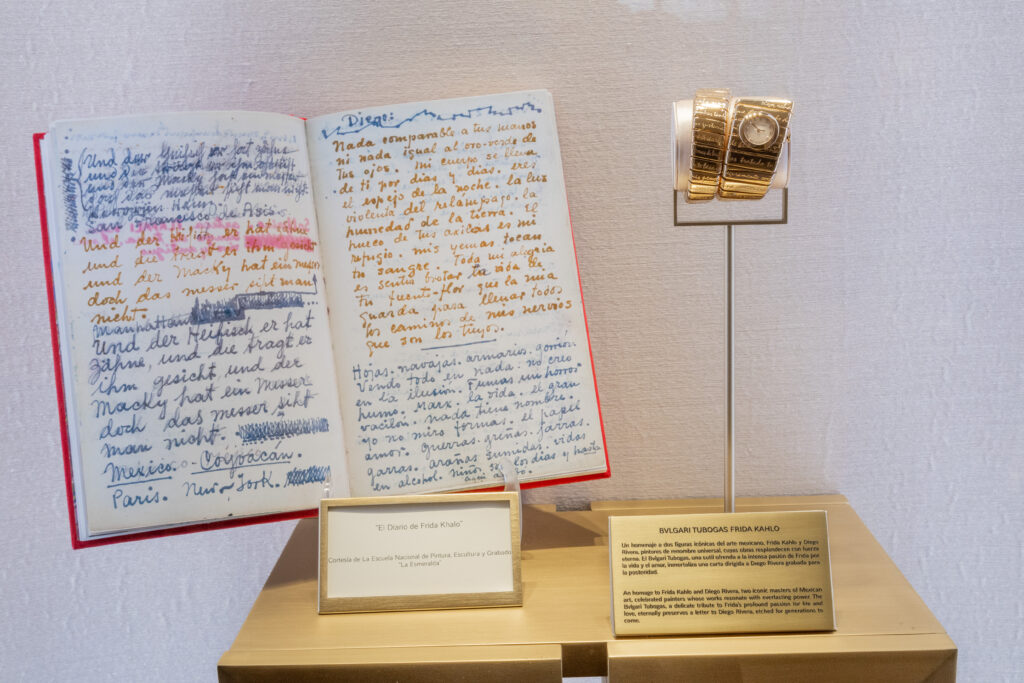 Und der Haifisch er hat zähne
San Francisco de Asis.
Und der Haifisch er hat zähne
und die tragt er ihm gesicht
und der Macky hat ein messer
doch das messer siht man
nicht.
Manhattan
Und der Heifisch er hat
Zähne, und die tragt er
ihm gesicht und der
Macky hat ein Messer
doch das messer siht
man nicht.
Mexico. - Coyoacan.
Paris. New-York.
Diego:
Nada comparable a tus manos
ni nada igual al oro-verde de
tus ojos. Mi cuerpo se llena
de ti por dias y dias. eres
el espejo de la noche. la luz
violenta del relámpago. la
humedad de la tierra. El
hueco de tus axilas es mi
refugio. mis yemas tocan
tu sangre. Toda mi alegria
es sentir brotar tu vida de
tu fuente-flor que la mia
guarda para llenar todos
los caminos de mis nervios
que son los tuyos.
Hojas. navajas. armario. gorrion
Vendo todo en nada. no creo
en la ilusión. Fumas un horror.
humo. Marx. la vida. el gran
vacilón. nada tiene nombre.
yo no miro formas. el papel
amor. Guerras. greñas. jarras.
garras. arañas sumidas. vidas
en alcohol. niños son los dias y hasta
aqui acabo.
"El Diario de Frida Khalo"
Cortesía de La Escuela Nacional de Pintura, Escultura y Grabado
"La Esmeralda"
BVLGARI TUBOGAS FRIDA KAHLO
Un homenaje a dos figuras icónicas del arte mexicano, Frida Kahlo y Diego
Rivera, pintores de renombre universal, cuyas obras resplandecen con fuerza
eterna. El Bvlgari Tubogas, una sutil ofrenda a la intensa pasión de Frida por
la vida y el amor, inmortaliza una carta dirigida a Diego Rivera grabada para
la posteridad.
An homage to Frida Kahlo and Diego Rivera, two iconic masters of Mexican
art, celebrated painters whose works resonate with everlasting power. The
Bvlgari Tubogas, a delicate tribute to Frida's profound passion for life and
love, eternally preserves a letter to Diego Rivera, etched for generations to
come.